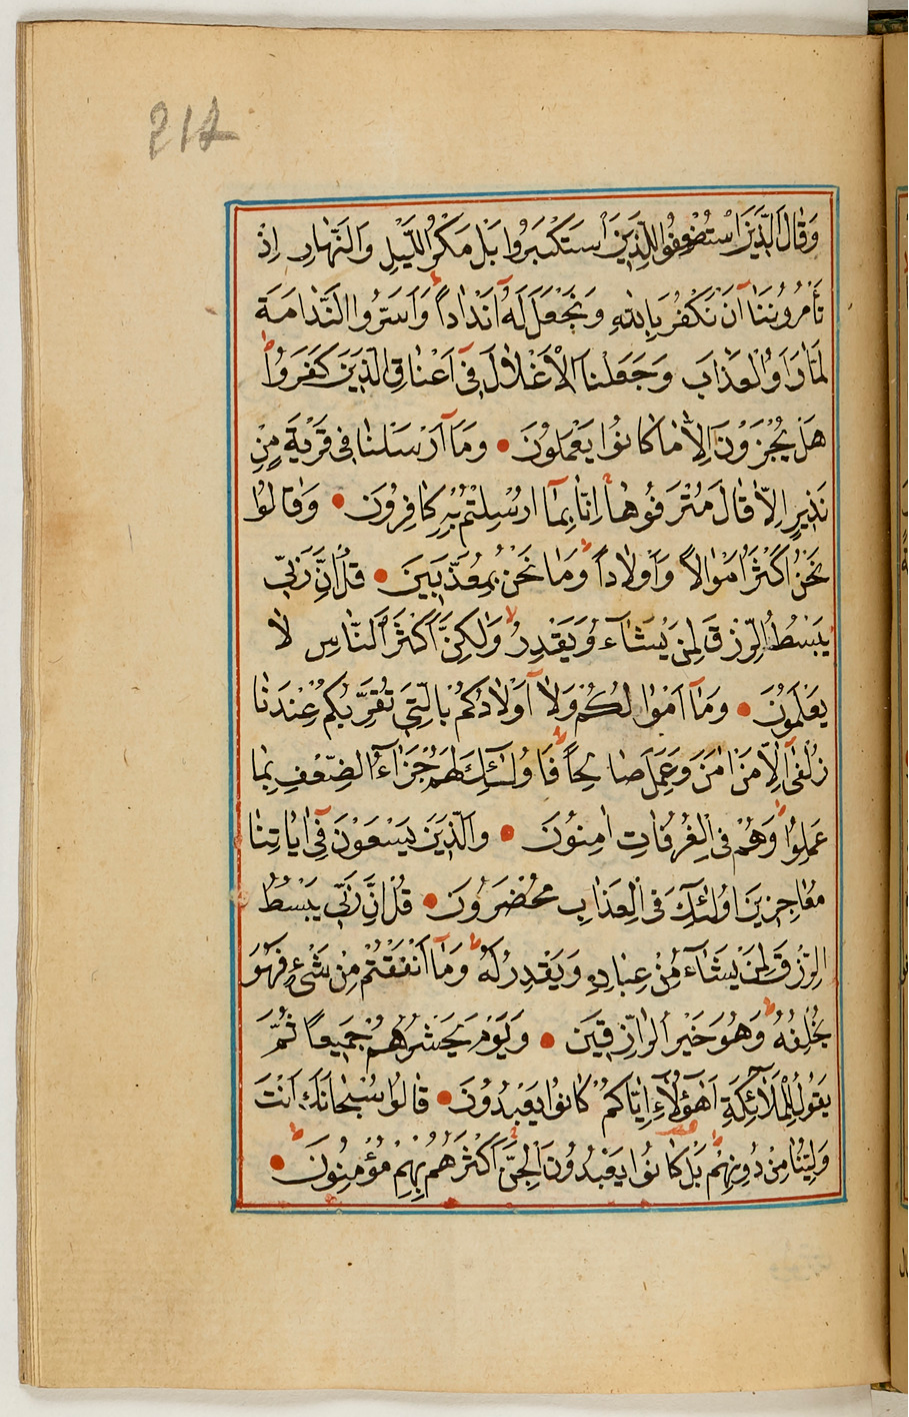 217
وَقَالَ الَّذِينَ اسْتُضْعِفُوا لِلَّذِينَ اسْتَكْبَرُوا بَلْ مَكْرُ اللَّيْلِ وَالنَّهَارِ اِذْ
تَأْمُرُونَنَا اَنْ نَكْفُرَ بِاللّٰهِ وَنَجْعَلَ لَهُ اَنْدَادًا وَاَسَرُّوا النَّدَامَةَ
لَمَّا رَاَوُا الْعَذَابَ وَجَعَلْنَا الْاَغْلَالَ فِى اَعْنَاقِ الَّذِينَ كَفَرُوا
هَلْ يُجْزَوْنَ اِلَّا مَا كَانُوا يَعْمَلُونَ ● وَمَا اَرْسَلْنَا فِى قَرْيَةٍ مِنْ
نَذِيرٍ اِلَّا قَالَ مُتْرَفُوهَا اِنَّا بِمَا اُرْسِلْتُمْ بِهِ كَافِرُونَ ● وَقَالُوا
نَحْنُ اَكْثَرُ اَمْوَالًا وَاَوْلَادًا وَمَا نَحْنُ بِمُعَذَّبِينَ ● قُلْ اِنَّ رَبِّى
يَبْسُطُ الرِّزْقَ لِمَنْ يَشَاءُ وَيَقْدِرُ وَلٰكِنَّ اَكْثَرَ النَّاسِ لَا
يَعْلَمُونَ ● وَمَا اَمْوَالُكُمْ وَلَا اَوْلَادُكُمْ بِالَّتِى تُقَرِّبُكُمْ عِنْدَنَا
زُلْفٰى اِلَّا مَنْ اٰمَنَ وَعَمِلَ صَالِحًا فَاُولٰئِكَ لَهُمْ جَزَاءُ الضِّعْفِ بِمَا
عَمِلُوا وَهُمْ فِى الْغُرُفَاتِ اٰمِنُونَ ● وَالَّذِينَ يَسْعَوْنَ فِى اٰيَاتِنَا
مُعَاجِزِينَ اُولٰئِكَ فِى الْعَذَابِ مُحْضَرُونَ ● قُلْ اِنَّ رَبِّى يَبْسُطُ
الرِّزْقَ لِمَنْ يَشَاءُ مِنْ عِبَادِهِ وَيَقْدِرُ لَهُ وَمَا اَنْفَقْتُمْ مِنْ شَىْءٍ فَهُوَ
يُخْلِفُهُ وَهُوَ خَيْرُ الرَّازِقِينَ ● وَيَوْمَ يَحْشُرُهُمْ جَمِيعًا ثُمَّ
يَقُولُ لِلْمَلَائِكَةِ اَهٰؤُلَاءِ اِيَّاكُمْ كَانُوا يَعْبُدُونَ ● قَالُوا سُبْحَانَكَ اَنْتَ
وَلِيُّنَا مِنْ دُونِهِمْ بَلْ كَانُوا يَعْبُدُونَ الْجِنَّ اَكْثَرُهُمْ بِهِمْ مُؤْمِنُونَ ●